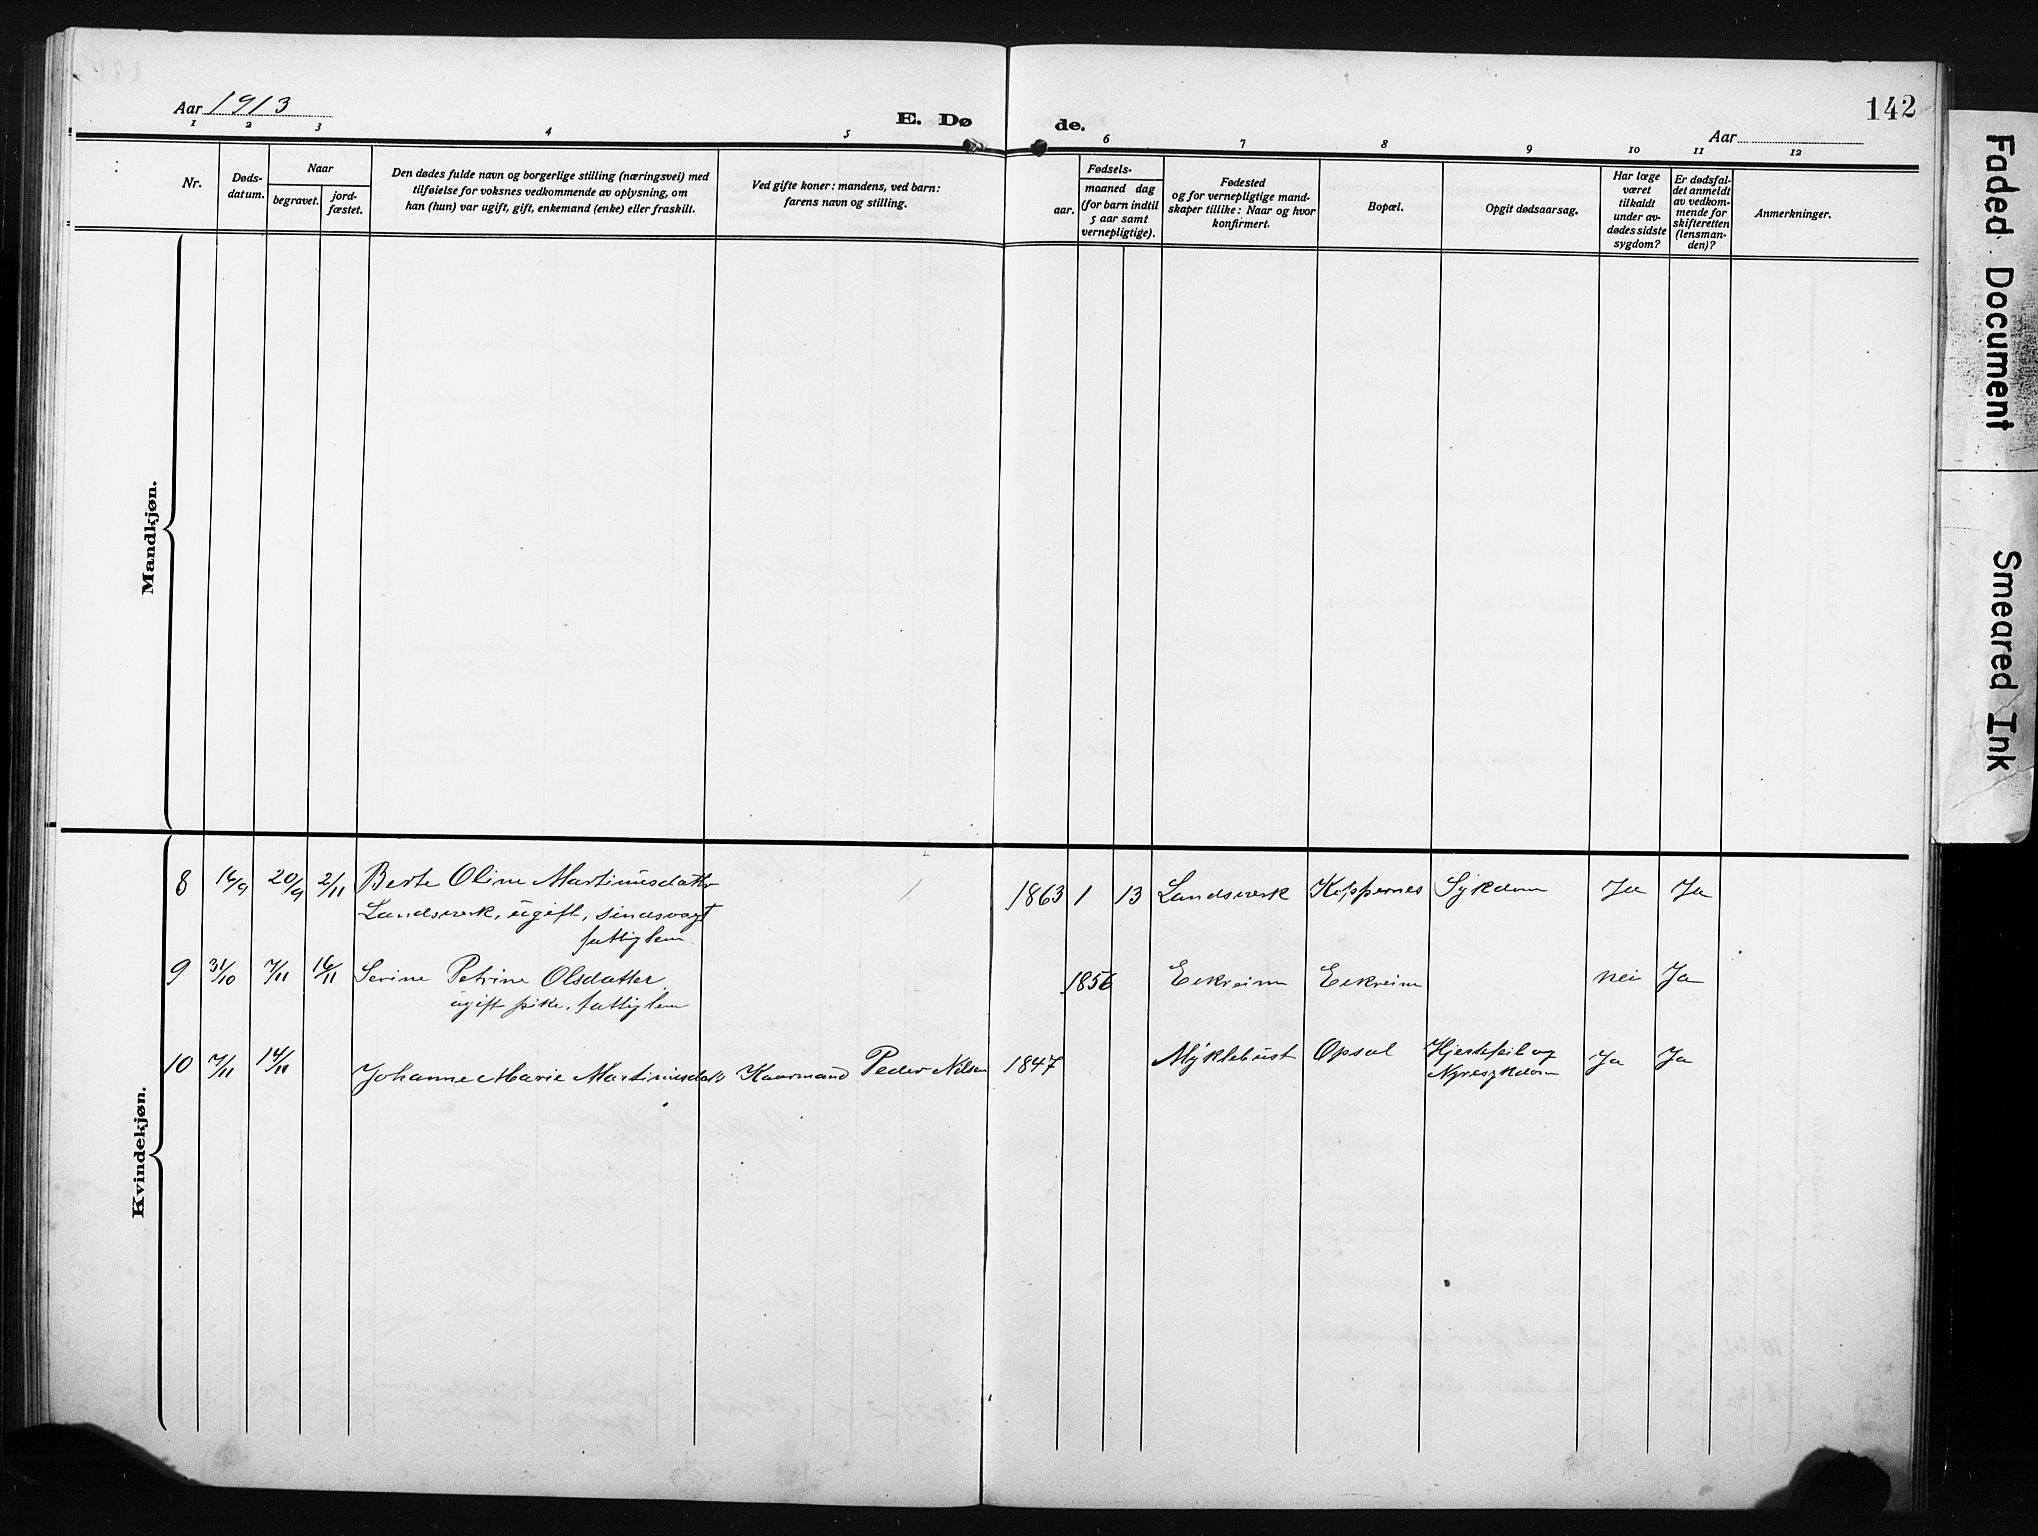 Aar 1913
E. Døde.
142
Aar
1 2 3 4 5 6 7 8 9 10 11 12
Nr.
Døds-
datum.
Naar
begravet.
jord-
fæstet.
Den dødes fulde navn og borgerlige stilling (næringsvei) med
tilføielse for voksnes vedkommende av oplysning, om
han (hun) var ugift, gift, enkemand (enke) eller fraskilt.
Ved gifte koner: mandens, ved barn:
farens navn og stilling.
Fødsels-
aar.
maaned dag
(for barn indtil
5 aar samt
vernepligtige).
Fødested
og for vernepligtige mand-
skaper tillike: Naar og hvor
konfirmert.
Bopæl.
Opgit dødsaarsag.
Har læge
været
tilkaldt
under av-
dødes sidste
sygdom?
Er dødsfal-
det anmeldt
av vedkom-
mende for
skifteretten
(lensman-
den)?
Anmerkninger.
Mandkjøn.
Kvindekjøn.
8 16/9 20/9 2/11 Berte Oline Martinusdatter 1863 1 13 Landsverk Koppernes Sykdom Ja Ja
Landsverk, ugift, sindsvagt
fattiglem.
9 31/10 7/11 16/11 Serine Petrine Olsdatter 1856 Eikreim Eikreim nei Ja
ugift pike, fattiglem
10 7/11 14/11 Johanne Marie Martinusdatr Kaarmand Peder Nilsen 1847 Myklebust Opsal Hjertefeil og Ja Ja
Nyresykdom
Faded Document
Smeared Ink